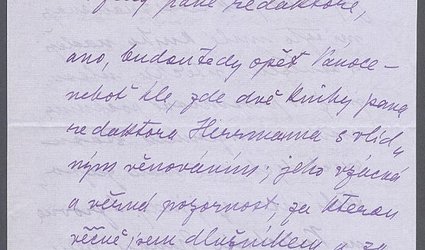 pane redaktore,
ano, budou tedy opět Vánoce –
neboť hle, zde dvě knihy pana
redaktora Herrmanna s vlíd„
ným věnováním; jeho vzácná
a věrná pozornost, za kterou
věčně jsem dlužníkem, za